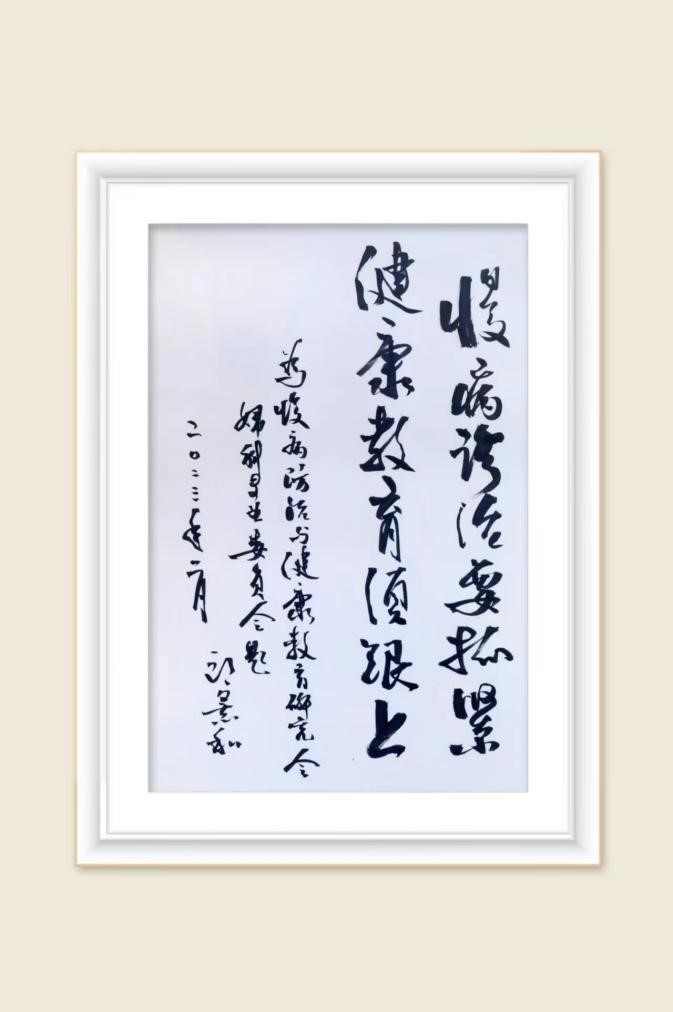 慢病诊治要抓紧
健康教育须跟上
为慢病防治与健康教育研究会
妇科专业委员会题
二〇二三年二月
郎景和